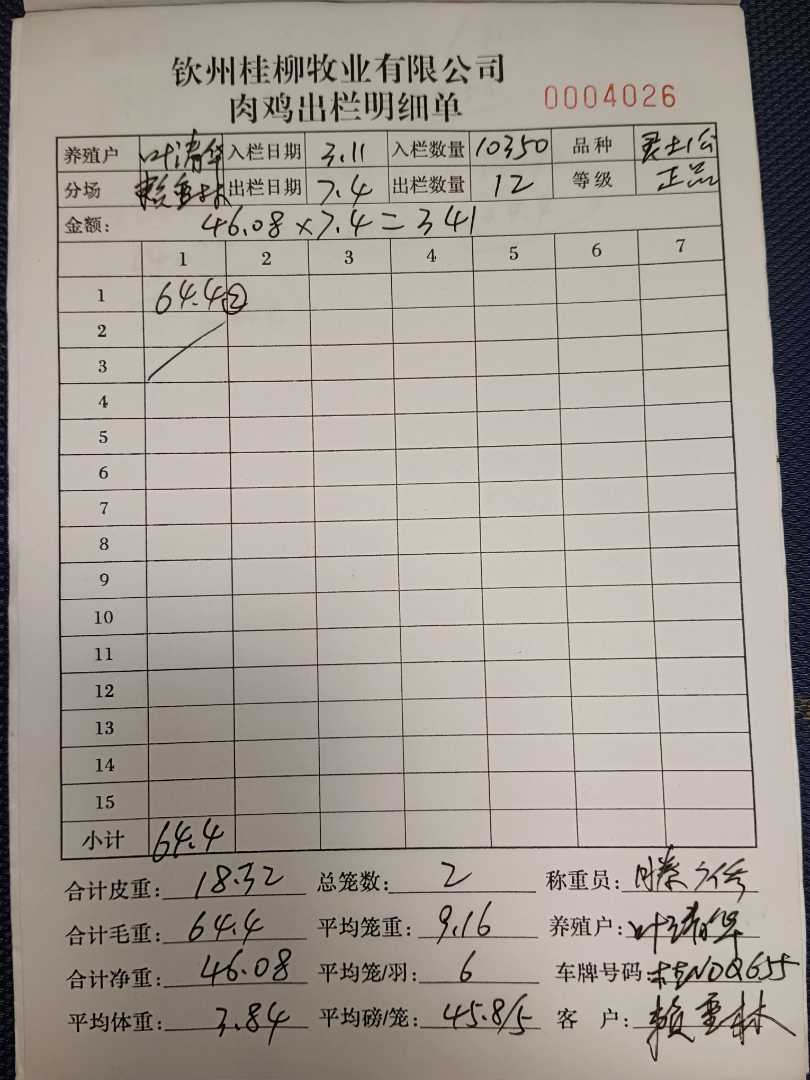 钦州桂柳牧业有限公司
肉鸡出栏明细单 0004026
养殖户 叶清华 入栏日期 3.11 入栏数量 10350 品种
分场 赖重林 出栏日期 7.4 出栏数量 12 等级 正品
金额: 46.08×7.4=341
1 2 3 4 5 6 7
1 64.4②
2
3
4
5
6
7
8
9
10
11
12
13
14
15
小计 64.4
合计皮重: 18.32 总笼数: 2 称重员:
合计毛重: 64.4 平均笼重: 9.16 养殖户: 叶清华
合计净重: 46.08 平均笼/羽: 6 车牌号码: 桂NDQ655
平均体重: 3.84 平均磅/笼: 45.8/5 客 户: 赖重林